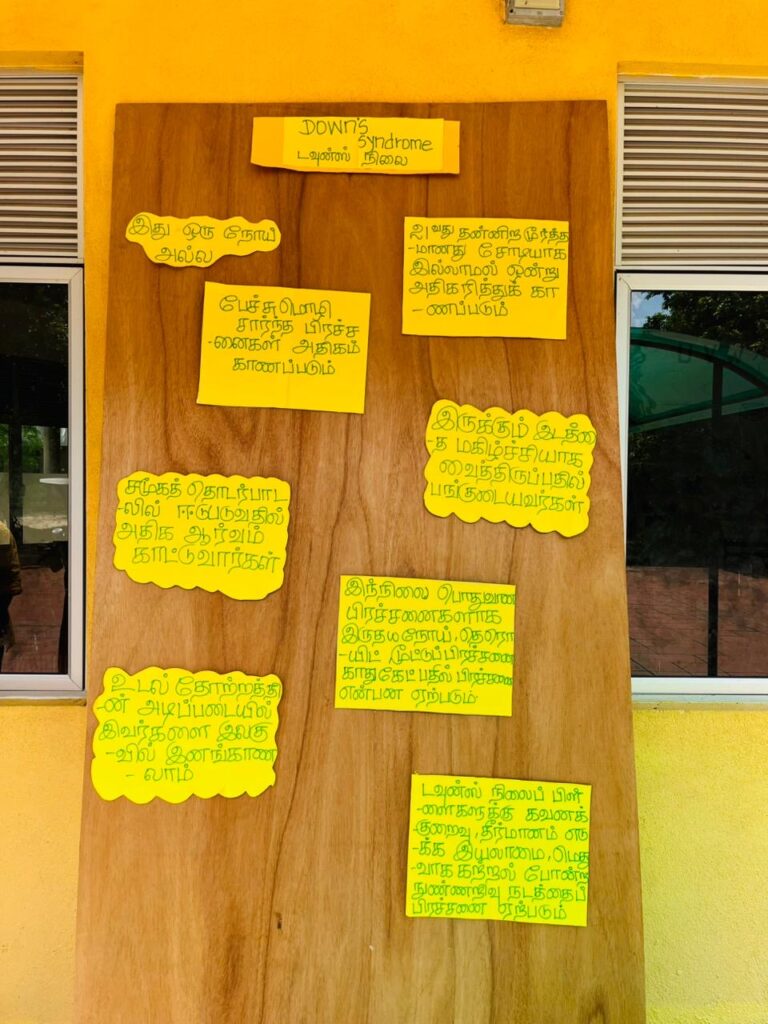 DOWN'S
Syndrome
டவுன்ஸ் நிலை
இது ஒரு நோய்
அல்ல
21வது தன்னிற மூர்த்த
-மானது சோடியாக
இல்லாமல் ஒன்று
அதிகரித்துக் கா
- ணப்படும்
பேச்சு மொழி
சார்ந்த பிரச்ச
-னைகள் அதிகம்
காணப்படும்
இருக்கும் இடத்தை
-த மகிழ்ச்சியாக
வைத்திருப்பதில்
பங்குடையவர்கள்
சமூகத் தொடர்பாட
-லில் ஈடுபடுவதில்
அதிக ஆர்வம்
காட்டுவார்கள்
இந்நிலை பொதுவான
பிரச்சனைகளாக
இருதயநோய், தைரொ
-யிட் மூட்டுப்பிரச்சனை
காதுகேட்பதில் பிரச்சனை
என்பன ஏற்படும்
உடல் தோற்றத்தி
-ன் அடிப்படையில்
இவர்களை இலகு
-வில் இனங்காண
- லாம்
டவுன்ஸ் நிலைப் பிள்
-ளைகளுக்கு கவனக்
குறைவு, தீர்மானம் எடு
-க்க இயலாமை, மெது
-வாக கற்றல் போன்ற
நுண்ணறிவு நடத்தைப்
பிரச்சனை ஏற்படும்